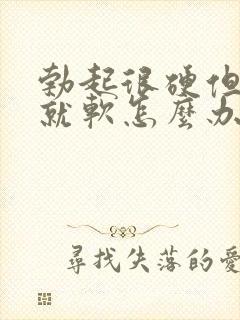 勃起很硬但
就軟怎麼办
尋找失落的愛